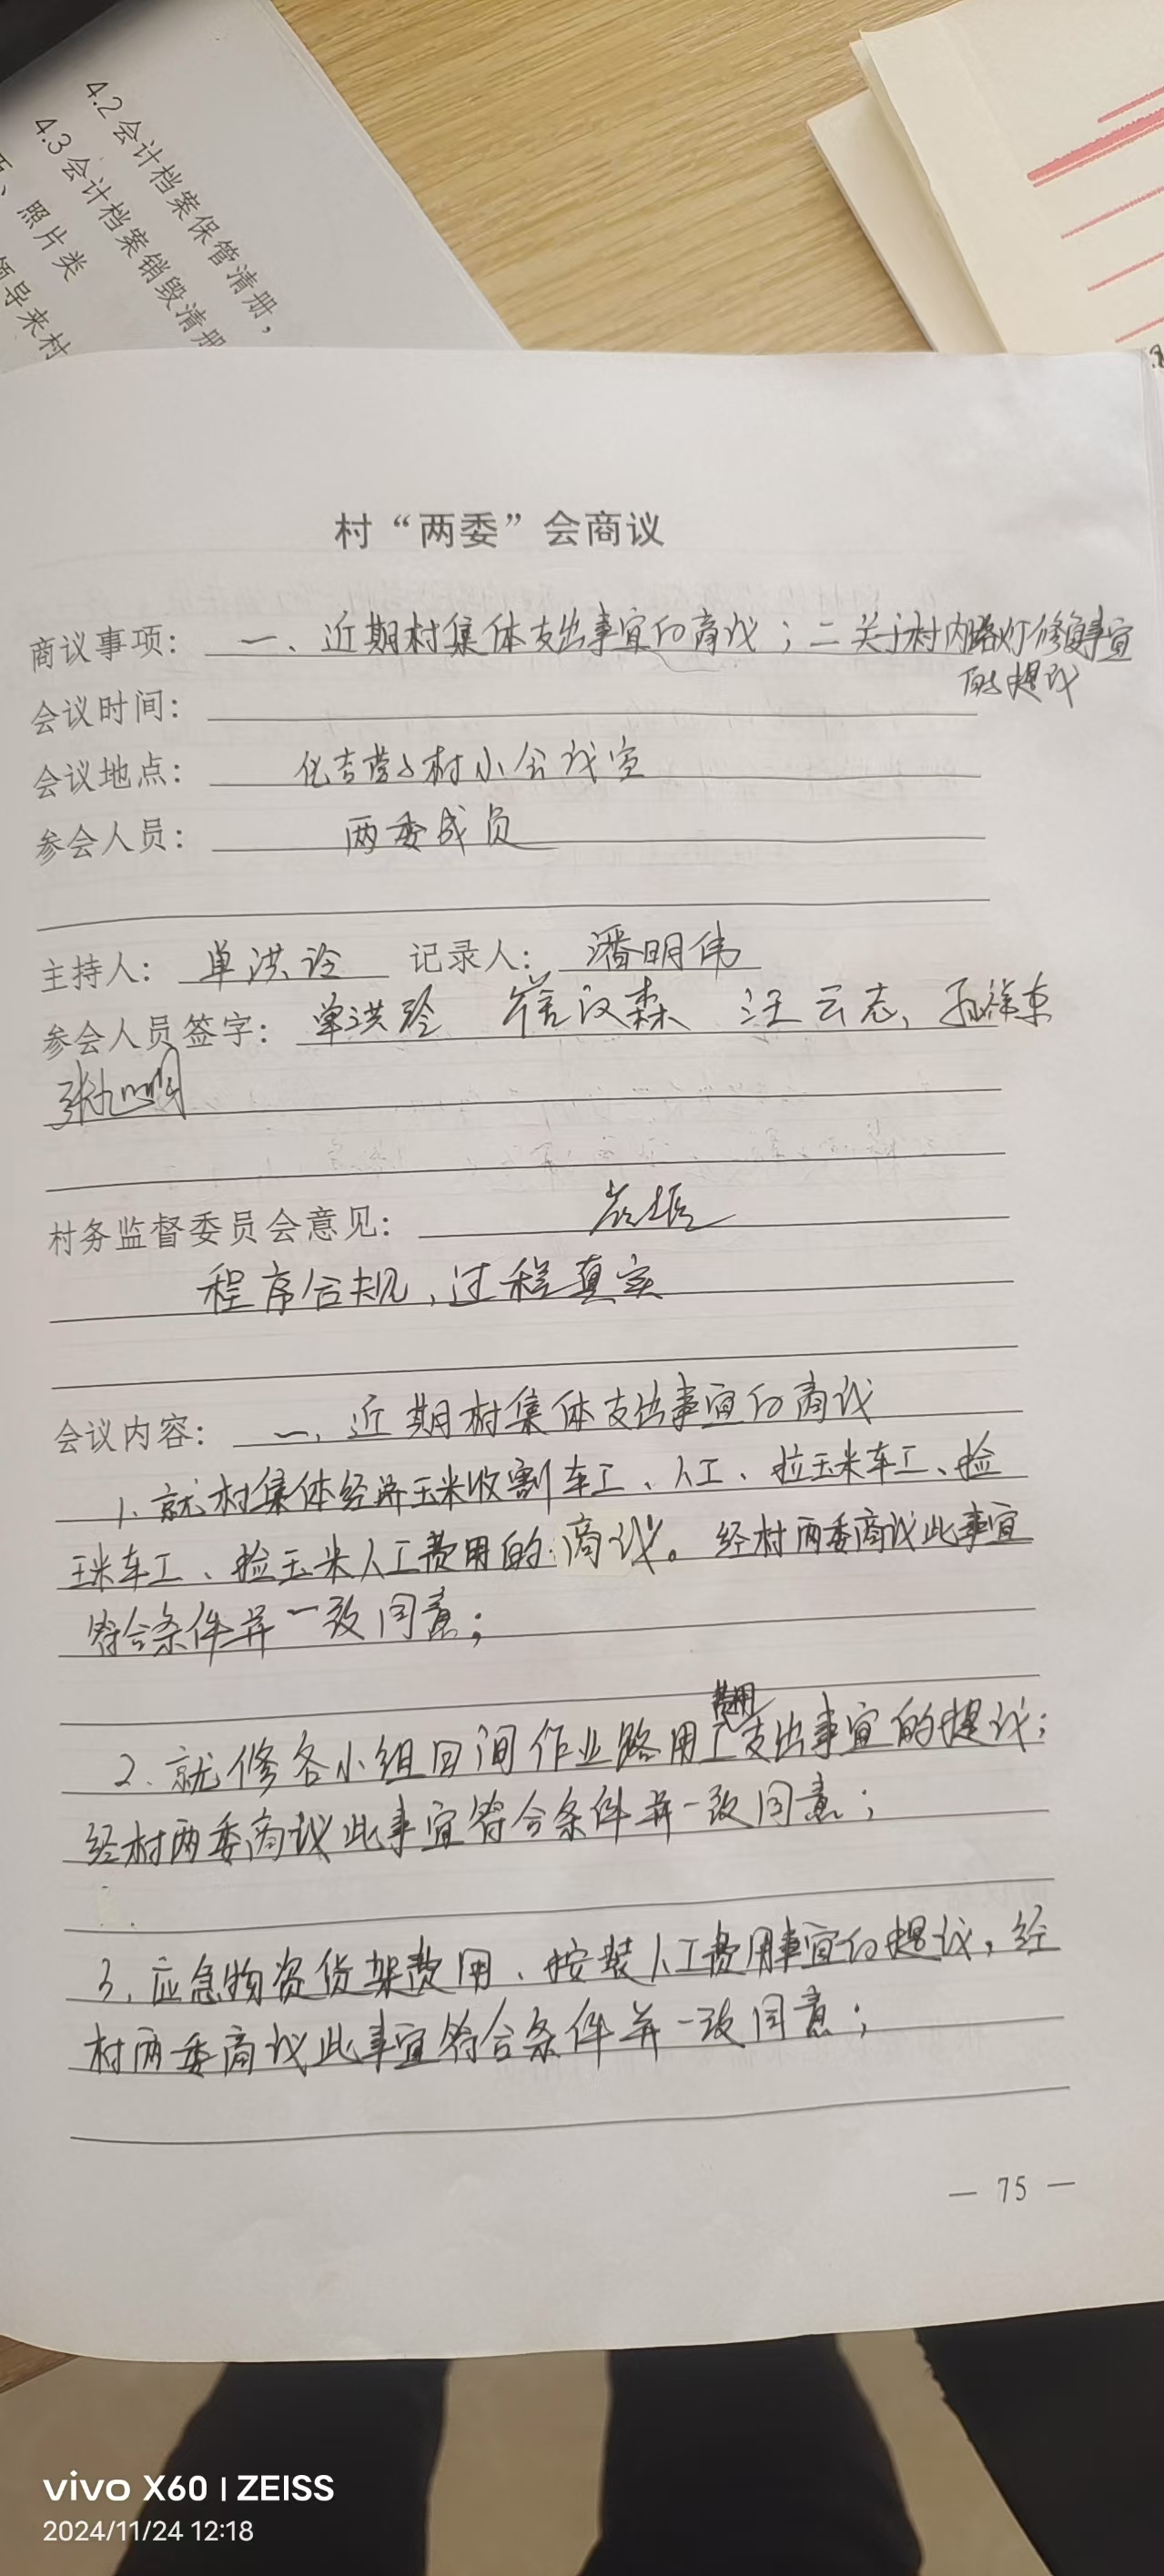 4.2 会计档案保管清册,
4.3 会计档案销毁清册
、照片类
领导来村
村“两委”会商议
商议事项: 一、近期村集体支出事宜的商议;二关于村内路灯修复事宜
的提议
会议时间:
会议地点: 化吉营子村小会议室
参会人员: 两委成员
主持人: 单洪玲 记录人: 潘明伟
参会人员签字: 单洪玲 汉森 汪云志、
村务监督委员会意见:
程序合规,过程真实
会议内容: 一、近期村集体支出事宜的商议
1、就村集体经济玉米收割车工、人工、拉玉米车工、捡
玉米车工、捡玉米人工费用的商议。经村两委商议此事宜
符合条件并一致同意;
费用
2、就修各小组田间作业路用工支出事宜的提议;
经村两委商议此事宜符合条件并一致同意;
3、应急物资货架费用、按装人工费用事宜的提议,经
村两委商议此事宜符合条件并一致同意;
— 75 —
vivo X60 | ZEISS
2024/11/24 12:18